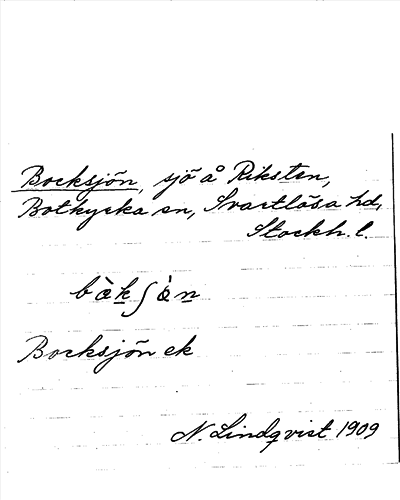 Bocksjön, sjö å Riksten,
Botkyrka sn, Svartlösa hd,
Stockh. l.
bò̵kʃö̀n
Bocksjön ek
N. Lindqvist 1909